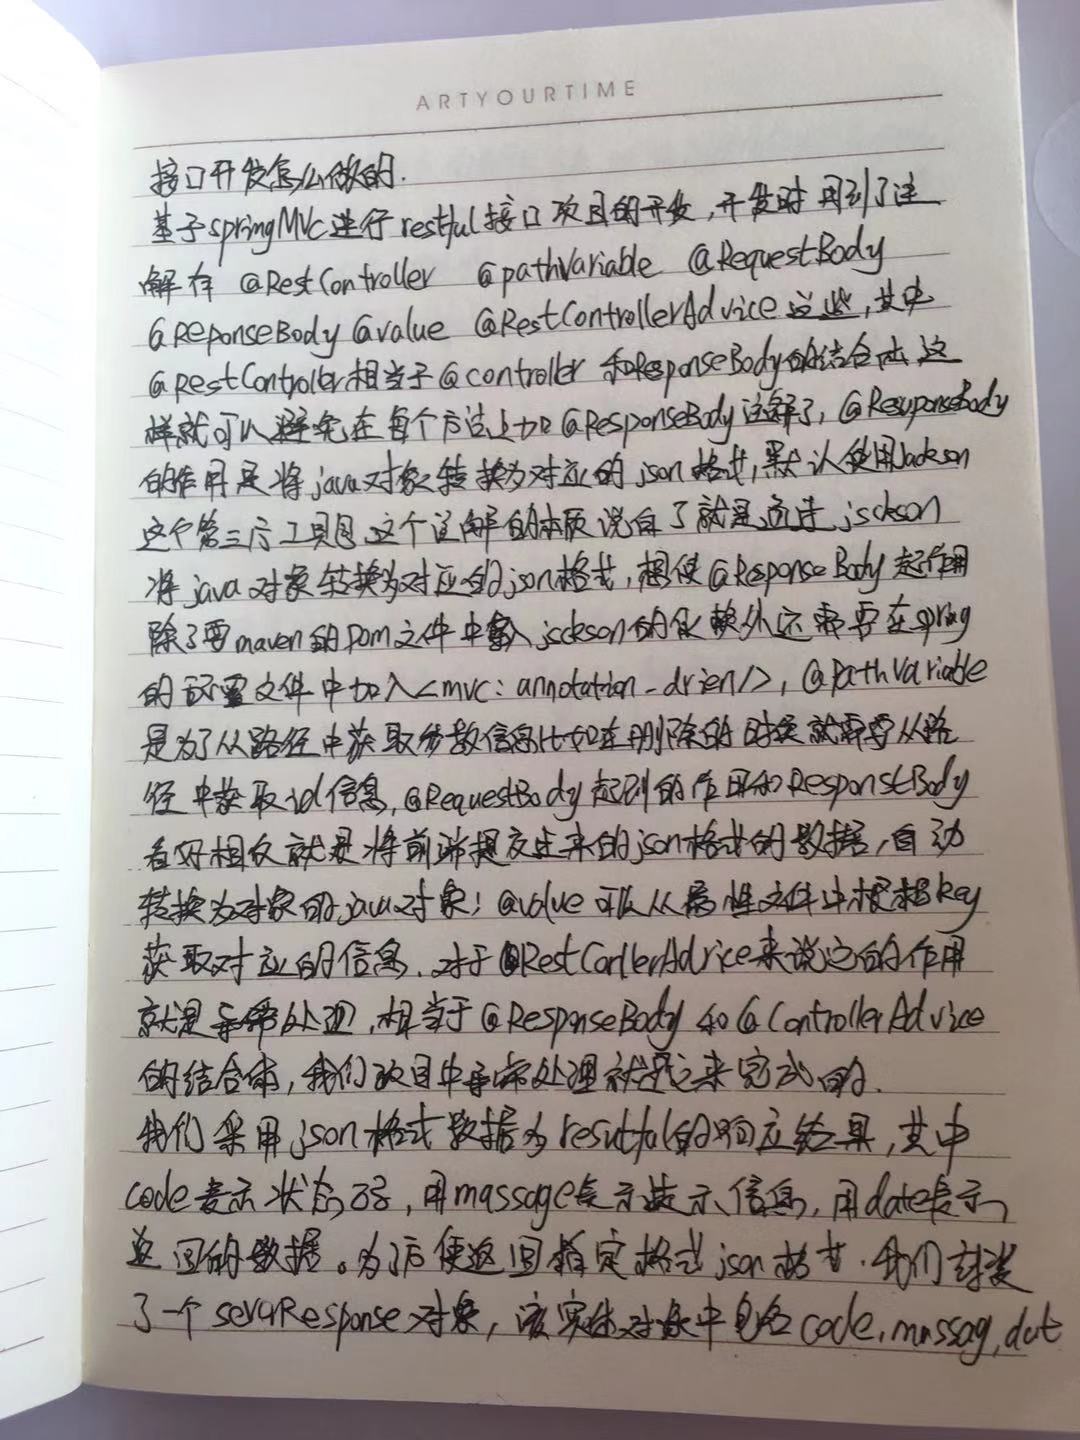 ARTYOURTIME
接口开发怎么做的.
基于springMVC进行restful接口项目的开发,开发时用到了注
解有 @RestController @pathVariable @RequestBody
@ReponseBody @value @RestControllerAdvice这些,其中
@RestController相当于@controller 和ResponseBody的结合体,这
样就可以避免在每个方法上加@ResponseBody注解了,@ResponseBody
的作用是将java对象转换为对应的json格式,默认使用Jackson
这个第三方工具包,这个注解的本质说白了就是通过jsckson
将java对象转换为对应的json格式,想使@ResponseBody起作用
除了要maven的pom文件中 jsckson的依赖外还需要在spring
的配置文件中加入<mvc:annotation-drien/>,@PathVariable
是为了从路径中获取参数信息比如在删除的时候就需要从路
径中获取id信息,@RequestBody起到的作用和ResponseBody
看好相反就是将前端提交过来的json格式的数据,自动
转换为对象的java对象;@value可以从属性文件中根据key
获取对应的信息.对于@RestContllerAdvice来说它的作用
就是异常处理,相当于@ResponseBody和@ControllerAdvice
的结合体,我们项目中异常处理就是它来完成的.
我们采用json格式数据为resutful的响应结果,其中
code表示状态码,用massage表示提示信息,用date表示
返回的数据。为了方便返回指定格式json格式.我们封装
了一个severResponse对象,该实体对象中包含code,massag,dat